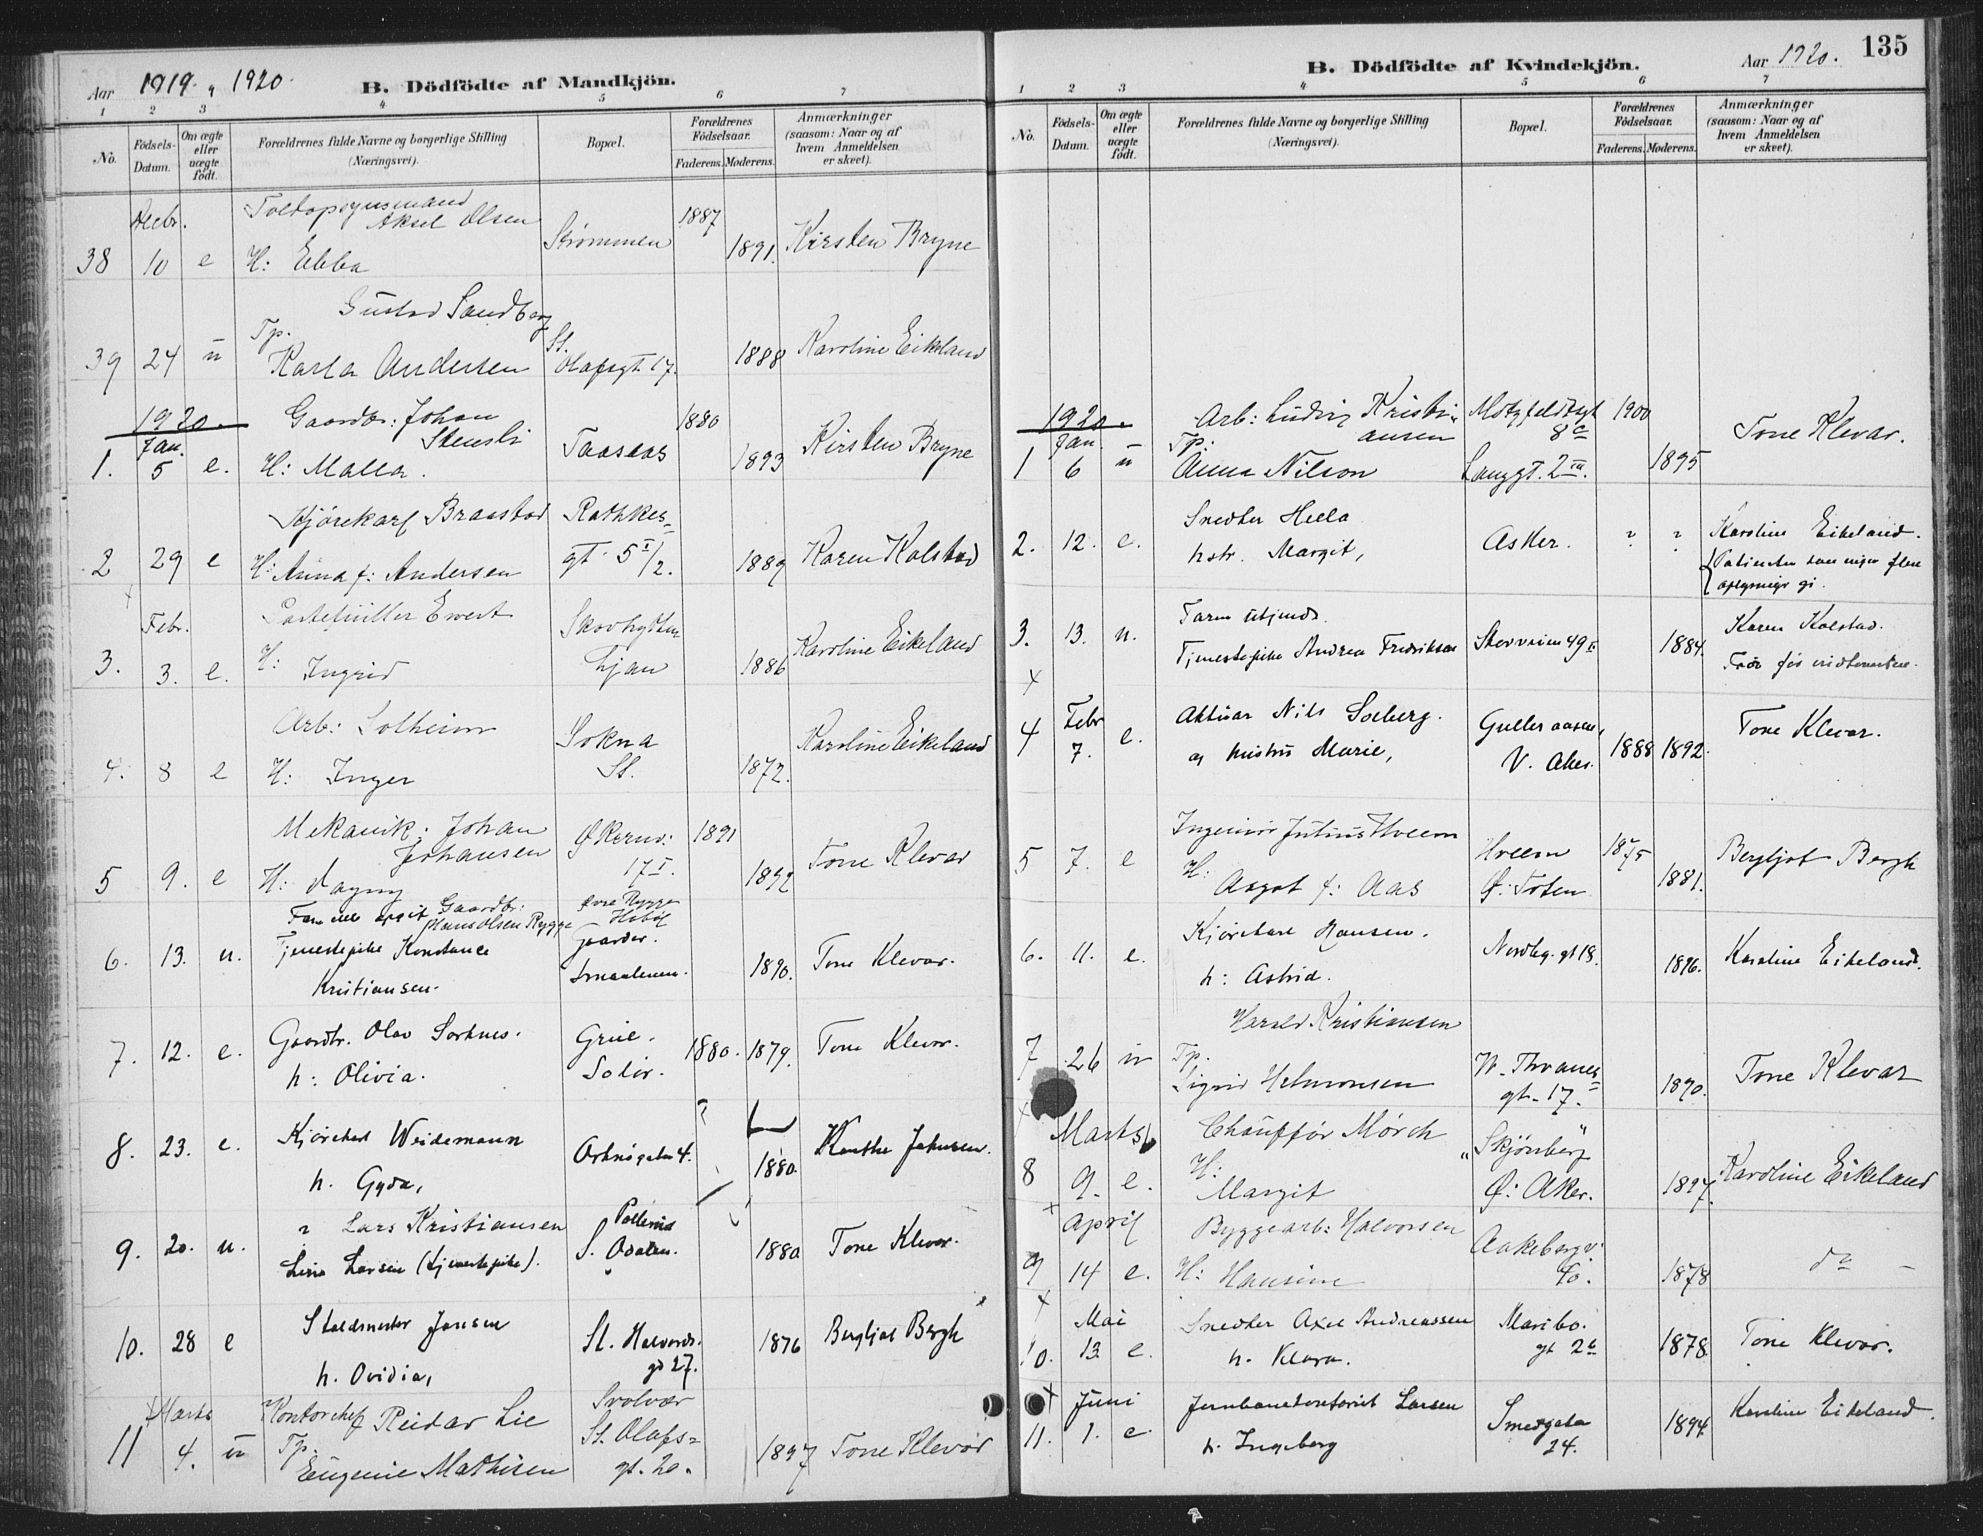 Aar 1919. 1920. B. Dödfödte af Mandkjön.
1 2 3 4 5 6 7
No. Födsels-Datum. Om ægte eller uægte födt. Forældrenes fulde Navne og borgerlige Stilling (Næringsvei). Bopæl. Forældrenes Födselsaar. Faderens. Moderens. Anmærkninger (saasom: Naar og af hvem Anmeldelsen er skeet).
Decbr. Toldopsynsmand
Aksel Olsen 1887
38 10 e H: Ebba Strømmen 1891. Kirsten Bryne
Gustav Sandberg
Tp. St.
39 24 u Karla Andersen Olafsgt. 17. 1888 Karoline Eikeland
1920. Gaardbr: Johan 1880
Jan. Stensli
1. 5 e. H: Malla. Taasaas 1893 Kirsten Bryne
Kjørekarl Braastad Rathkes-
2 29 e H: Anna f: Andersen gt. 5 I/2. 1889 Karen Kolstad
Febr. Ewert
3. 3. e. H: Ingrid Skovhytten Ljan 1886 Karoline Eikeland
Arb: Solheim Sokna
4. 8 e H: Inger St. 1872. Karoline Eikeland
Mekanik: Johan Johansen Økernv: 1891
5 9. e H: Dagny 17 I. 1892 Tone Klevar
Gaardbr:
Hans Olsen Rygge
6. 13. u. Tjenestepike Konstance Smaalenene. 1890. Tone Klevar.
Kristiansen.
Gaardbr. Olav Sorknes. Grue.
7. 12. e. h: Olivia. Solør. 1880. 1879. Tone Klevar.
Kjørekarl Weidemann
8. 23. e. h. Gyda, 4. 1880. Johnsen.
? Lars Kristiansen
9. 20. u. Larsen (tjenestepike). S. Odalen. 1880 Tone Klevar.
Staldmester Jansen St. Halvards.
10. 28 e h. Ovidia, gt 27. 1876 Bergljot Bergh
Marts Kontorchef Reidar Lie Svolvær
11 4. u Tp. St. Olafs-
Eugenie Mathisen gt. 20. 1897 Tone Klevar
B. Dödfödte af Kvindekjön. Aar 1920. 135
1 2 3 4 5 6 7
No. Födsels-Datum. Om ægte eller uægte födt. Forældrenes fulde Navne og borgerlige Stilling (Næringsvei). Bopæl. Forældrenes Födselsaar. Faderens. Moderens. Anmærkninger (saasom: Naar og af hvem Anmeldelsen er skeet).
1920. Arb: Ludvig Kristi- Motzfeldtsgt 1900
Jan. ansen 8 c
1 6 u Tp. Anna Nilson Langgt. 2 III. 1895 Tone Klevar.
Snedker Hella
2. 12. e. hstr. Margit, Asker. ? ? Karoline Eikeland.
Patienten kan ingen flere
oplysnigr gi.
Faren utjends.
3. 13. u. Tjenestepike Andrea Fredriksen 49 I 1884. Karen Kolstad.
Febr Aktuar Nils Solberg. Gulleraasen,
4 7. e. og hustru Marie, V. Aker. 1888 1892. Tone Klevar.
Ingeniør Julius Hveem Hveem 1875
5 7. e H: Aagot f: Aas Ø: Toten 1881. Bergljot Bergh
Kjørekarl Hansen.
6. 11. e. h: Astrid. Nordbg. gt 18. 1896. Karoline Eikeland.
Harald Kristiansen
7 26 u Tp. W. Thranes-
Sigrid gt. 17. 1890. Tone Klevar
Marts Chauffør Mørch „Skjønberg"
8 9. e. H: Margit Ø: Aker. 1897. Karoline Eikeland
April Byggearb: Halvorsen Aakebergv:
9 14 e. H: Hansine 40. 1878 do -
Mai Snedker Axel Andreassen Maribo.
10. 13 e. h. Klara. gt 2 1878. Tone Klevar.
Juni Larsen Smedgata
11. 1. e h. Ingeborg 24. 1894. Karoline Eikeland.